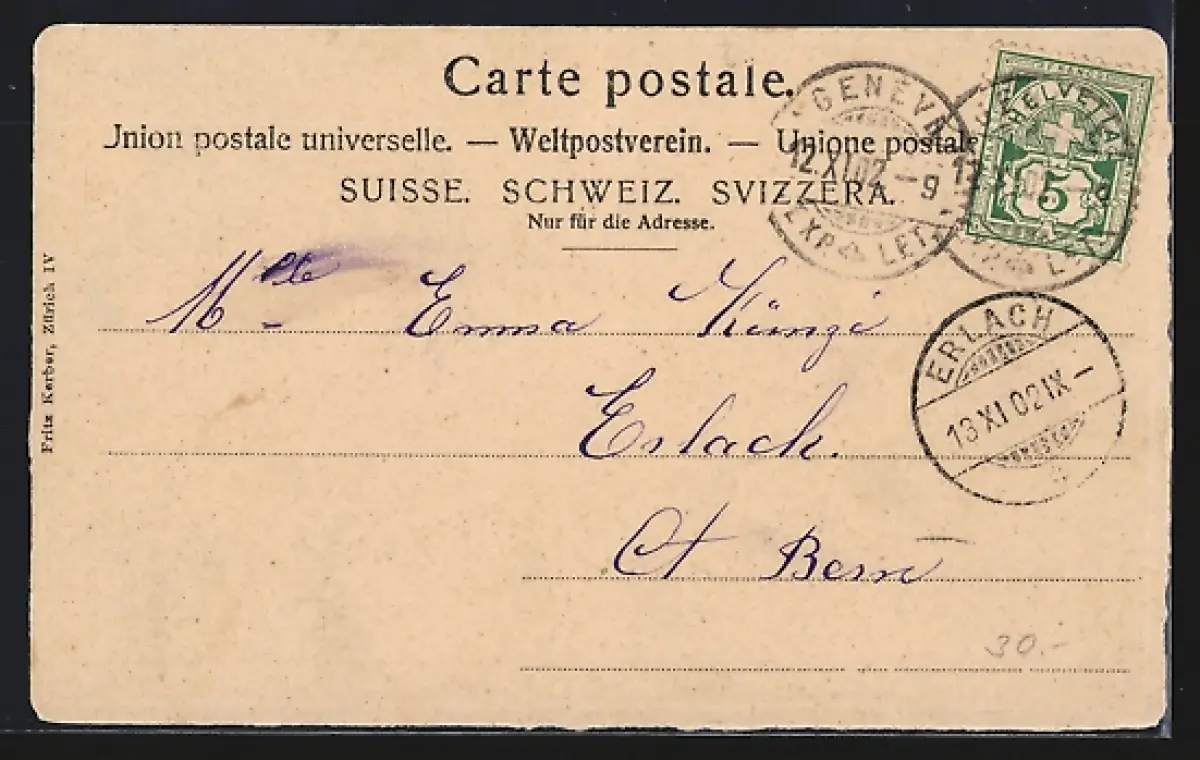 Carte postale.
Union postale universelle. — Weltpostverein. — Unione postale
SUISSE. SCHWEIZ. SVIZZERA.
Nur für die Adresse.
GENÈVE
12.XI.02.–9
EXP. LET.
HELVETIA
5
Mlle Emma Künzi
ERLACH
13 XI 02 IX –
Erlach.
Ct Bern
30.-
Fritz Kerber, Zürich IV